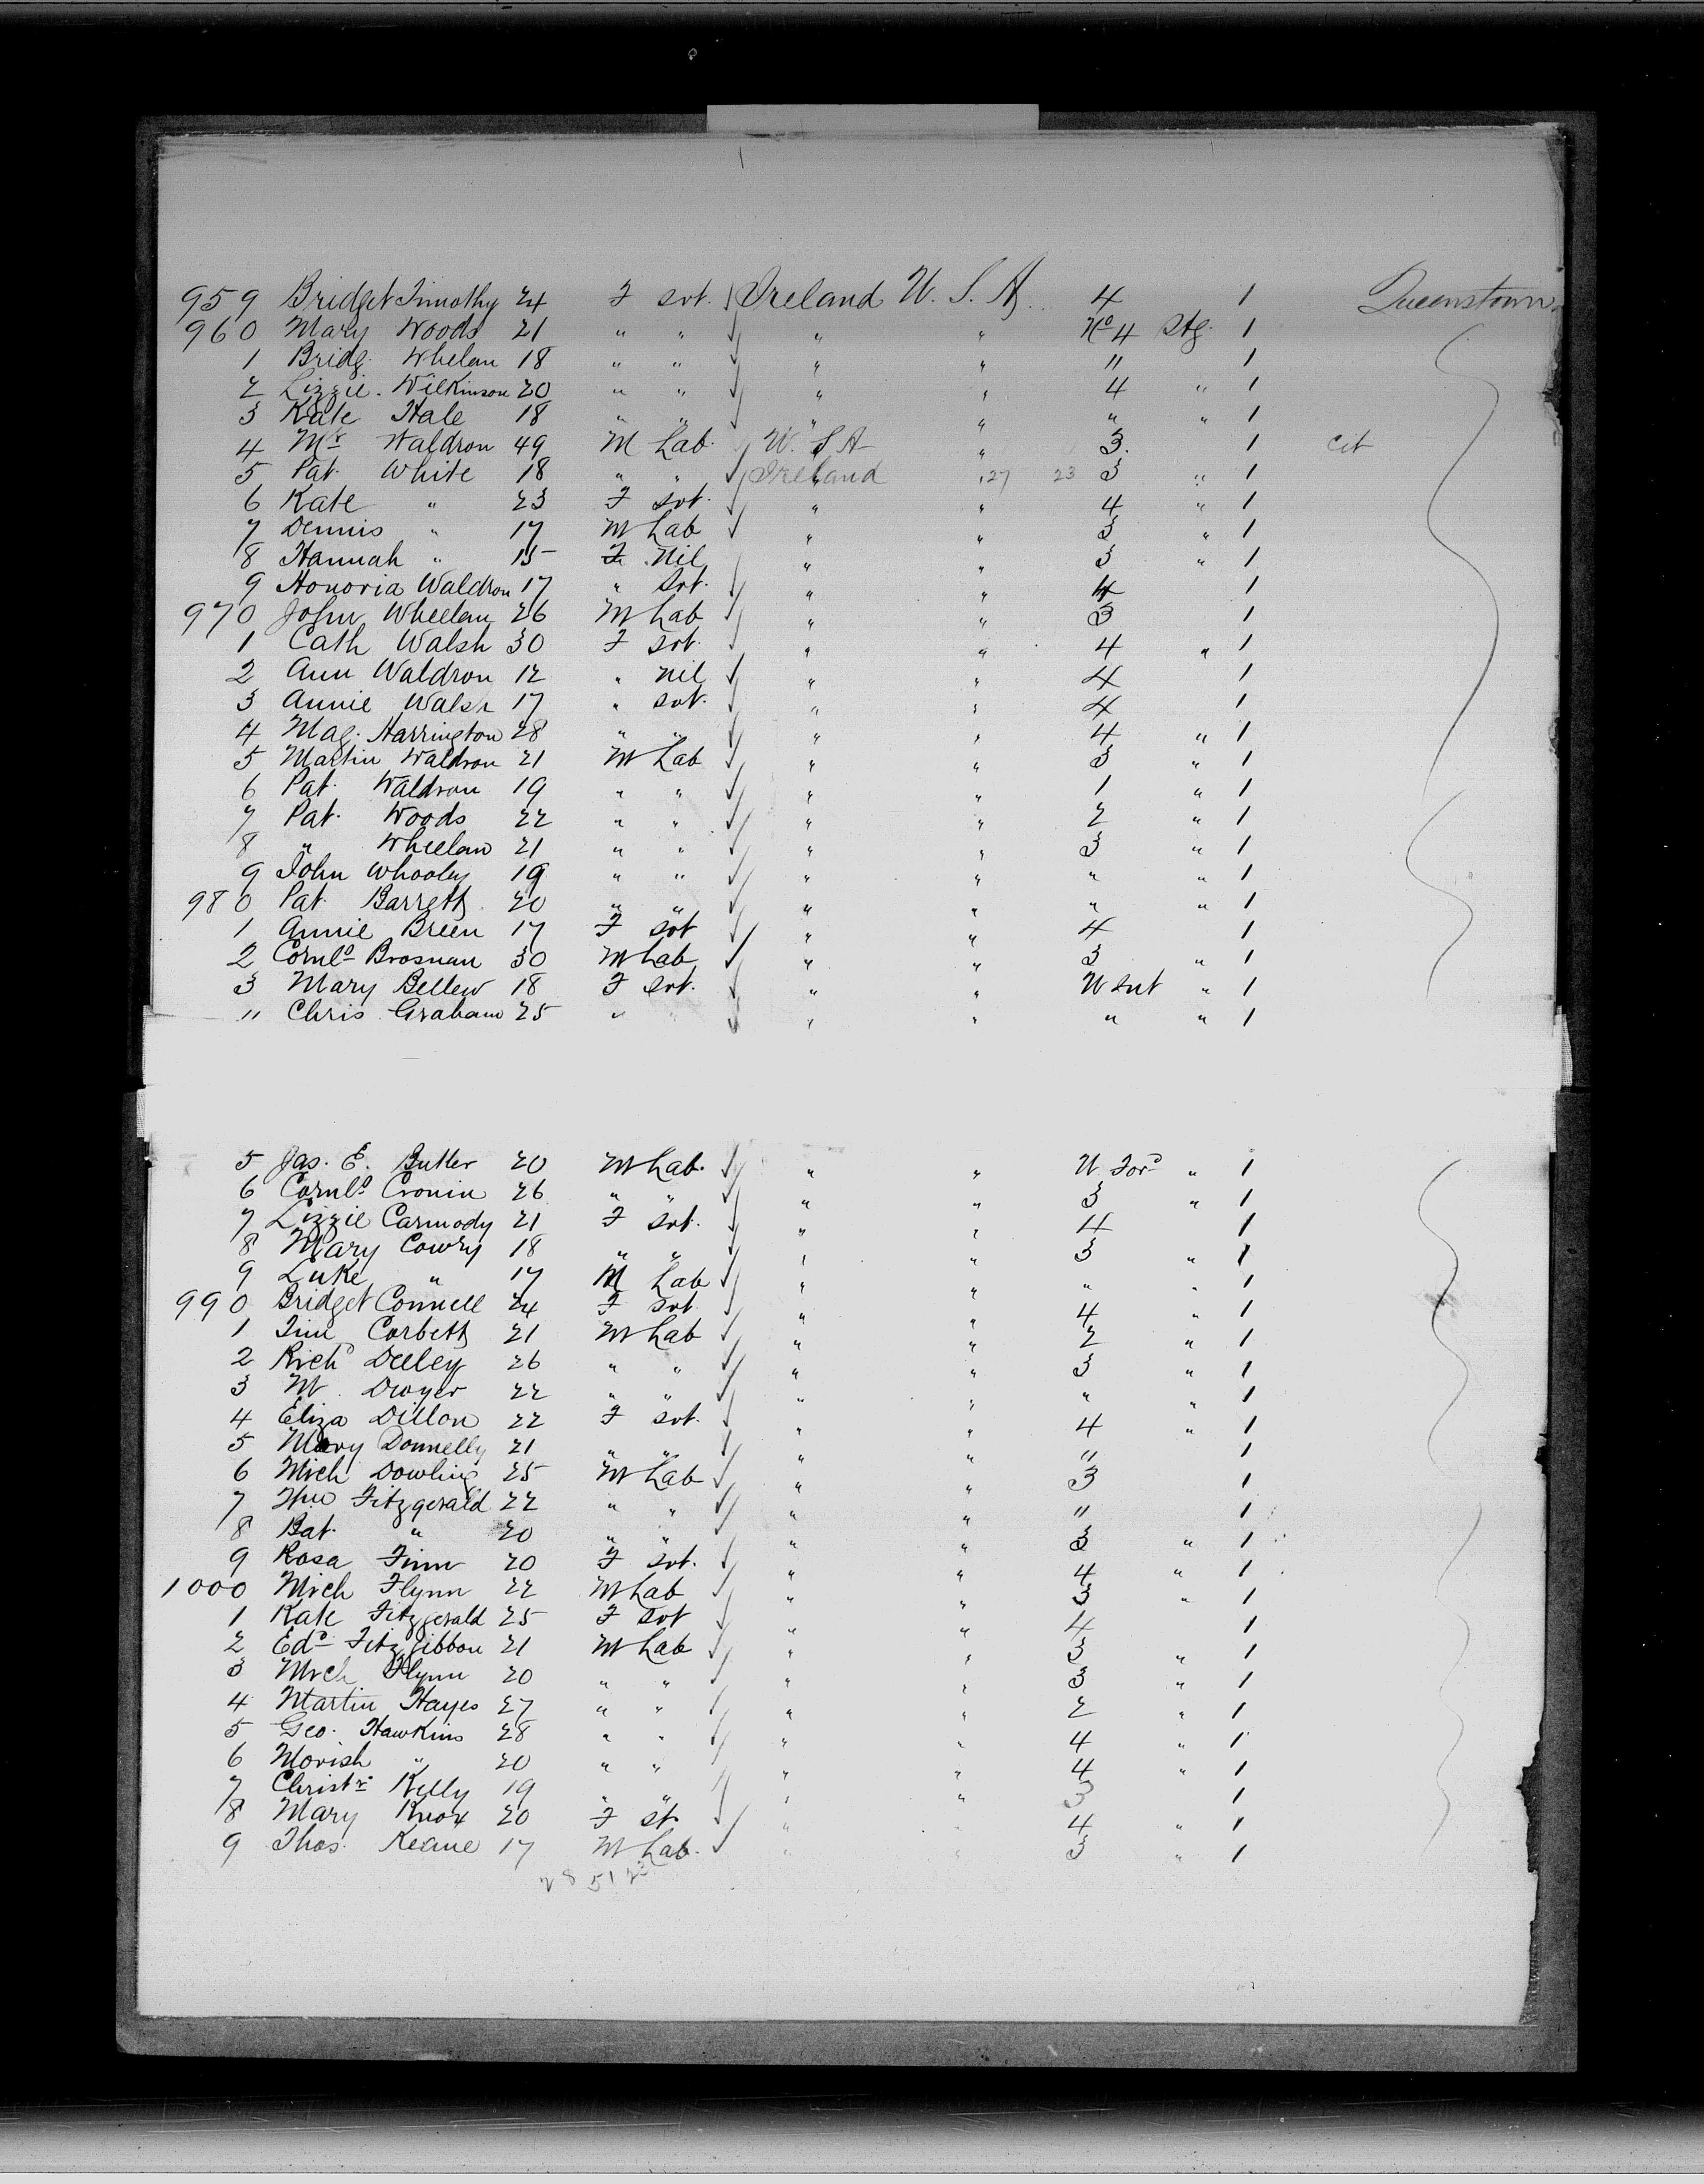 959 Bridget Timothy 24 F svt. Ireland U. S. A. 4 1 Queenstown
960 Mary Woods 21 " " " " No 4 Stg. 1
1 Bridg. Whelan 18 " " " " " 1
2 Lizzie. Wilkinson 20 " " " " 4 " 1
3 Kate Hale 18 " " " " " " 1
4 Mr Waldron 49 M Lab. U. S A " 3. 1 Cit
5 Pat. White 18 " " Ireland " 27 23 3 " 1
6 Kate " 23 F svt. " " 4 " 1
7 Dennis " 17 M Lab " " 3 " 1
8 Hannah " 15 F. Nil " " 3 " 1
9 Honoria Waldron 17 " svt. " " 4 1
970 John Wheelan 26 M Lab " " 3 1
1 Cath Walsh 30 F svt. " " 4 " 1
2 Ann Waldron 12 " nil " " 4 1
3 Annie Walsh 17 " svt. " " 4 1
4 Mag. Harrington 28 " " " " 4 " 1
5 Martin Waldron 21 M Lab " " 3 " 1
6 Pat. Waldron 19 " " " " 1 " 1
7 Pat. Woods 22 " " " " 2 " 1
8 " Wheelan 21 " " " " 3 " 1
9 John Whooley 19 " " " " " " 1
980 Pat Barrett 20 " " " " " " 1
1 Annie Breen 17 F svt " " 4 1
2 Cornls Brosnan 30 M Lab " " 3 " 1
3 Mary Bellew 18 F svt. " " " 1
" Chris Graham 25 " " " " " 1
5 Jas. E. Butler 20 M Lab. " " " 1
6 Cornls Cronin 26 " " " " 3 " 1
7 Lizzie Carmody 21 F svt. " " 4 1
8 Mary Cowry 18 " " " " 3 " 1
9 Luke " 17 M Lab " " " " 1
990 Bridget Connell 24 F svt. " " 4 " 1
1 Tim Corbett 21 M Lab " " 2 " 1
2 Richd Deeley 26 " " " " 3 " 1
3 M. Dwyer 22 " " " " " " 1
4 Eliza Dillon 22 F svt. " " 4 " 1
5 Mary Donnelly 21 " " " " " 1
6 Mich Dowling 25 M Lab " " 3 1
7 Fitzgerald 22 " " " " " 1
8 Bat. " 20 " " " " 3 " 1
9 Rosa Finn 20 F svt. " " 4 " 1
1000 Mich Flynn 22 M Lab " " 3 " 1
1 Kate Fitzgerald 25 F svt " " 4 1
2 Edd Fitzgibbon 21 M Lab " " 3 " 1
3 Mich Flynn 20 " " " " 3 " 1
4 Martin Hayes 27 " " " " 2 " 1
5 Geo. Hawkins 28 " " " " 4 " 1
6 Morish " 20 " " " " 4 " 1
7 Christr Kelly 19 " " " " 3 1
8 Mary Knox 20 F st. " " 4 " 1
9 Thos. Keane 17 M Lab. " " 3 " 1